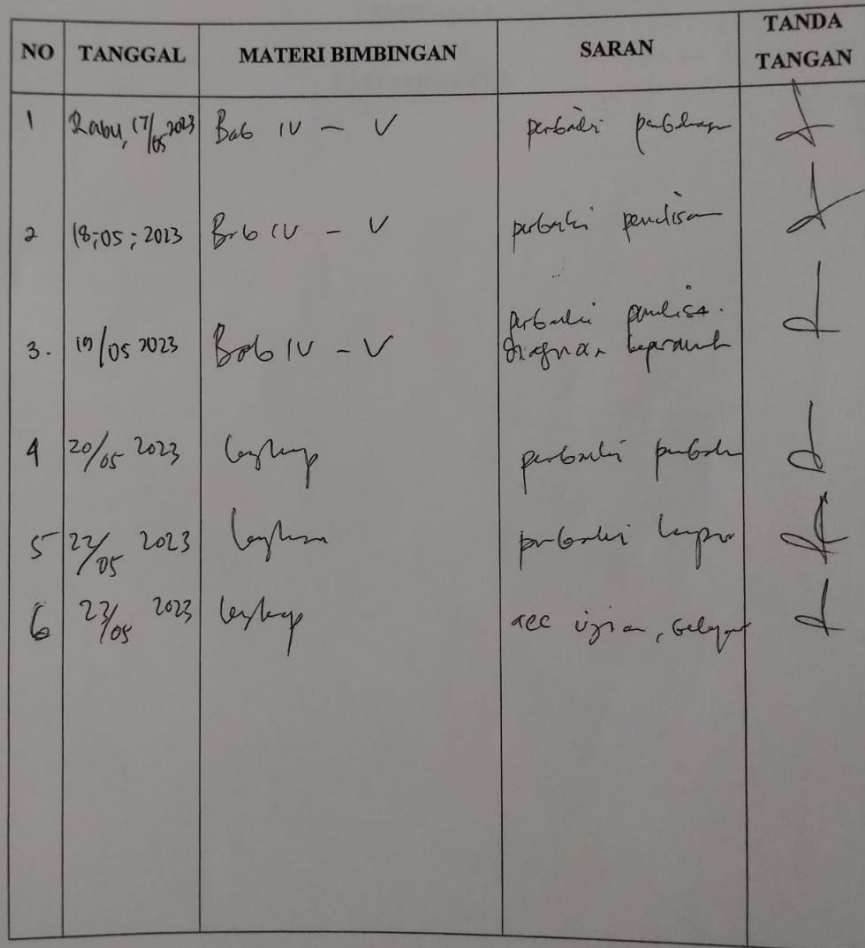 NO TANGGAL MATERI BIMBINGAN SARAN TANDA TANGAN
1 Rabu, 17/05 2023 Bab IV - V perbaiki
2 18;05;2023 Bab IV - V perbaiki penulisan
3. 19/05 2023 Bab IV - V perbaiki
diagnosa keperawat
4 20/05 2023 lengkap perbaiki
5 22/05 2023 lengkap perbaiki
6 23/05 2023 lengkap acc ujian,